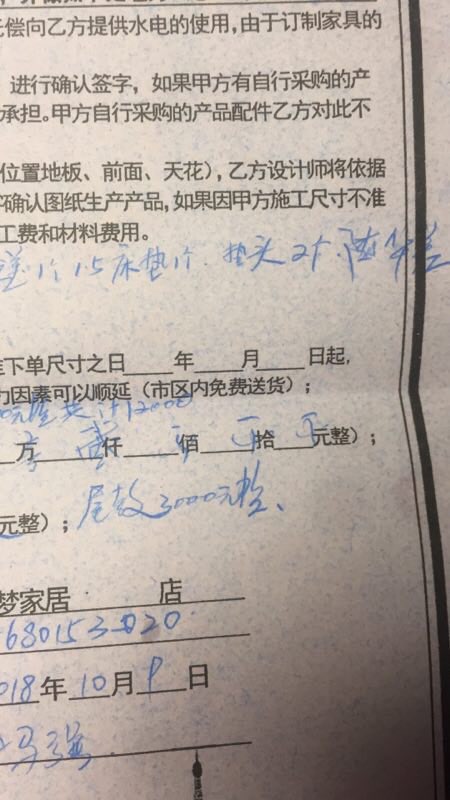 元偿向乙方提供水电的使用,由于订制家具的
进行确认签字,如果甲方有自行采购的产
承担。甲方自行采购的产品配件乙方对此不
位置地板、前面、天花),乙方设计师将依据
确认图纸生产产品,如果因甲方施工尺寸不准
工费和材料费用。
送1个1.5床垫1个.
下单尺寸之日 年 月 日起,
力因素可以顺延(市区内免费送货);
元整共计12000
万 仟 佰 拾 元整);
元整); 尾款3000元整、
梦家居 店
680153020
018年10月9日